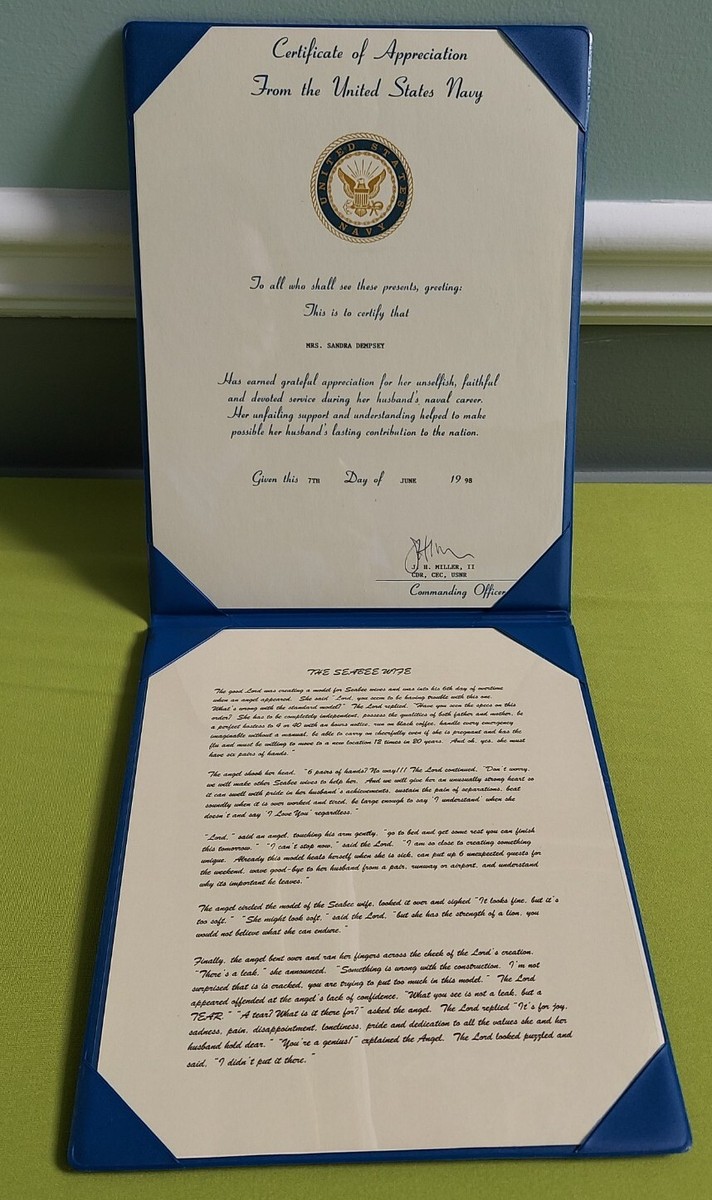 Certificate of Appreciation
From the United States Navy
UNITED STATES
NAVY
To all who shall see these presents, greeting:
This is to certify that
MRS. SANDRA DEMPSEY
Has earned grateful appreciation for her unselfish, faithful
and devoted service during her husband's naval career.
Her unfailing support and understanding helped to make
possible her husband's lasting contribution to the nation.
Given this 7TH Day of JUNE 19 98
J. H. MILLER, II
CDR, CEC, USNR
Commanding Officer
THE SEABEE WIFE
The good Lord was creating a model for Seabee wives and was into his 6th day of overtime
when an angel appeared. She said "Lord, you seem to be having trouble with this one.
What's wrong with the standard model?" The Lord replied, "Have you seen the specs on this
order? She has to be completely independent, possess the qualities of both father and mother, be
a perfect hostess to 4 or 40 with an hours notice, run on black coffee, handle every emergency
imaginable without a manual, be able to carry on cheerfully even if she is pregnant and has the
flu and must be willing to move to a new location 12 times in 20 years. And oh, yes, she must
have six pairs of hands."
The angel shook her head. "6 pairs of hands? No way!!! The Lord continued, "Don't worry,
we will make other Seabee wives to help her. And we will give her an unusually strong heart so
it can swell with pride in her husband's achievements, sustain the pain of separations, beat
soundly when it is over worked and tired, be large enough to say 'I understand' when she
doesn't and say 'I Love You' regardless."
"Lord," said an angel, touching his arm gently, "go to bed and get some rest you can finish
this tomorrow." "I can't stop now," said the Lord. "I am so close to creating something
unique. Already this model heals herself when she is sick, can put up 6 unexpected guests for
the weekend, wave good-bye to her husband from a pair, runway or airport, and understand
why its important he leaves."
The angel circled the model of the Seabee wife, looked it over and sighed "It looks fine, but it's
too soft." "She might look soft," said the Lord, "but she has the strength of a lion, you
would not believe what she can endure."
Finally, the angel bent over and ran her fingers across the cheek of the Lord's creation.
"There's a leak," she announced. "Something is wrong with the construction. I'm not
surprised that is is cracked, you are trying to put too much in this model." The Lord
appeared offended at the angel's lack of confidence. "What you see is not a leak, but a
TEAR." "A tear? What is it there for?" asked the angel. The Lord replied "It's for joy,
sadness, pain, disappointment, loneliness, pride and dedication to all the values she and her
husband hold dear." "You're a genius!" explained the Angel. The Lord looked puzzled and
said, "I didn't put it there."